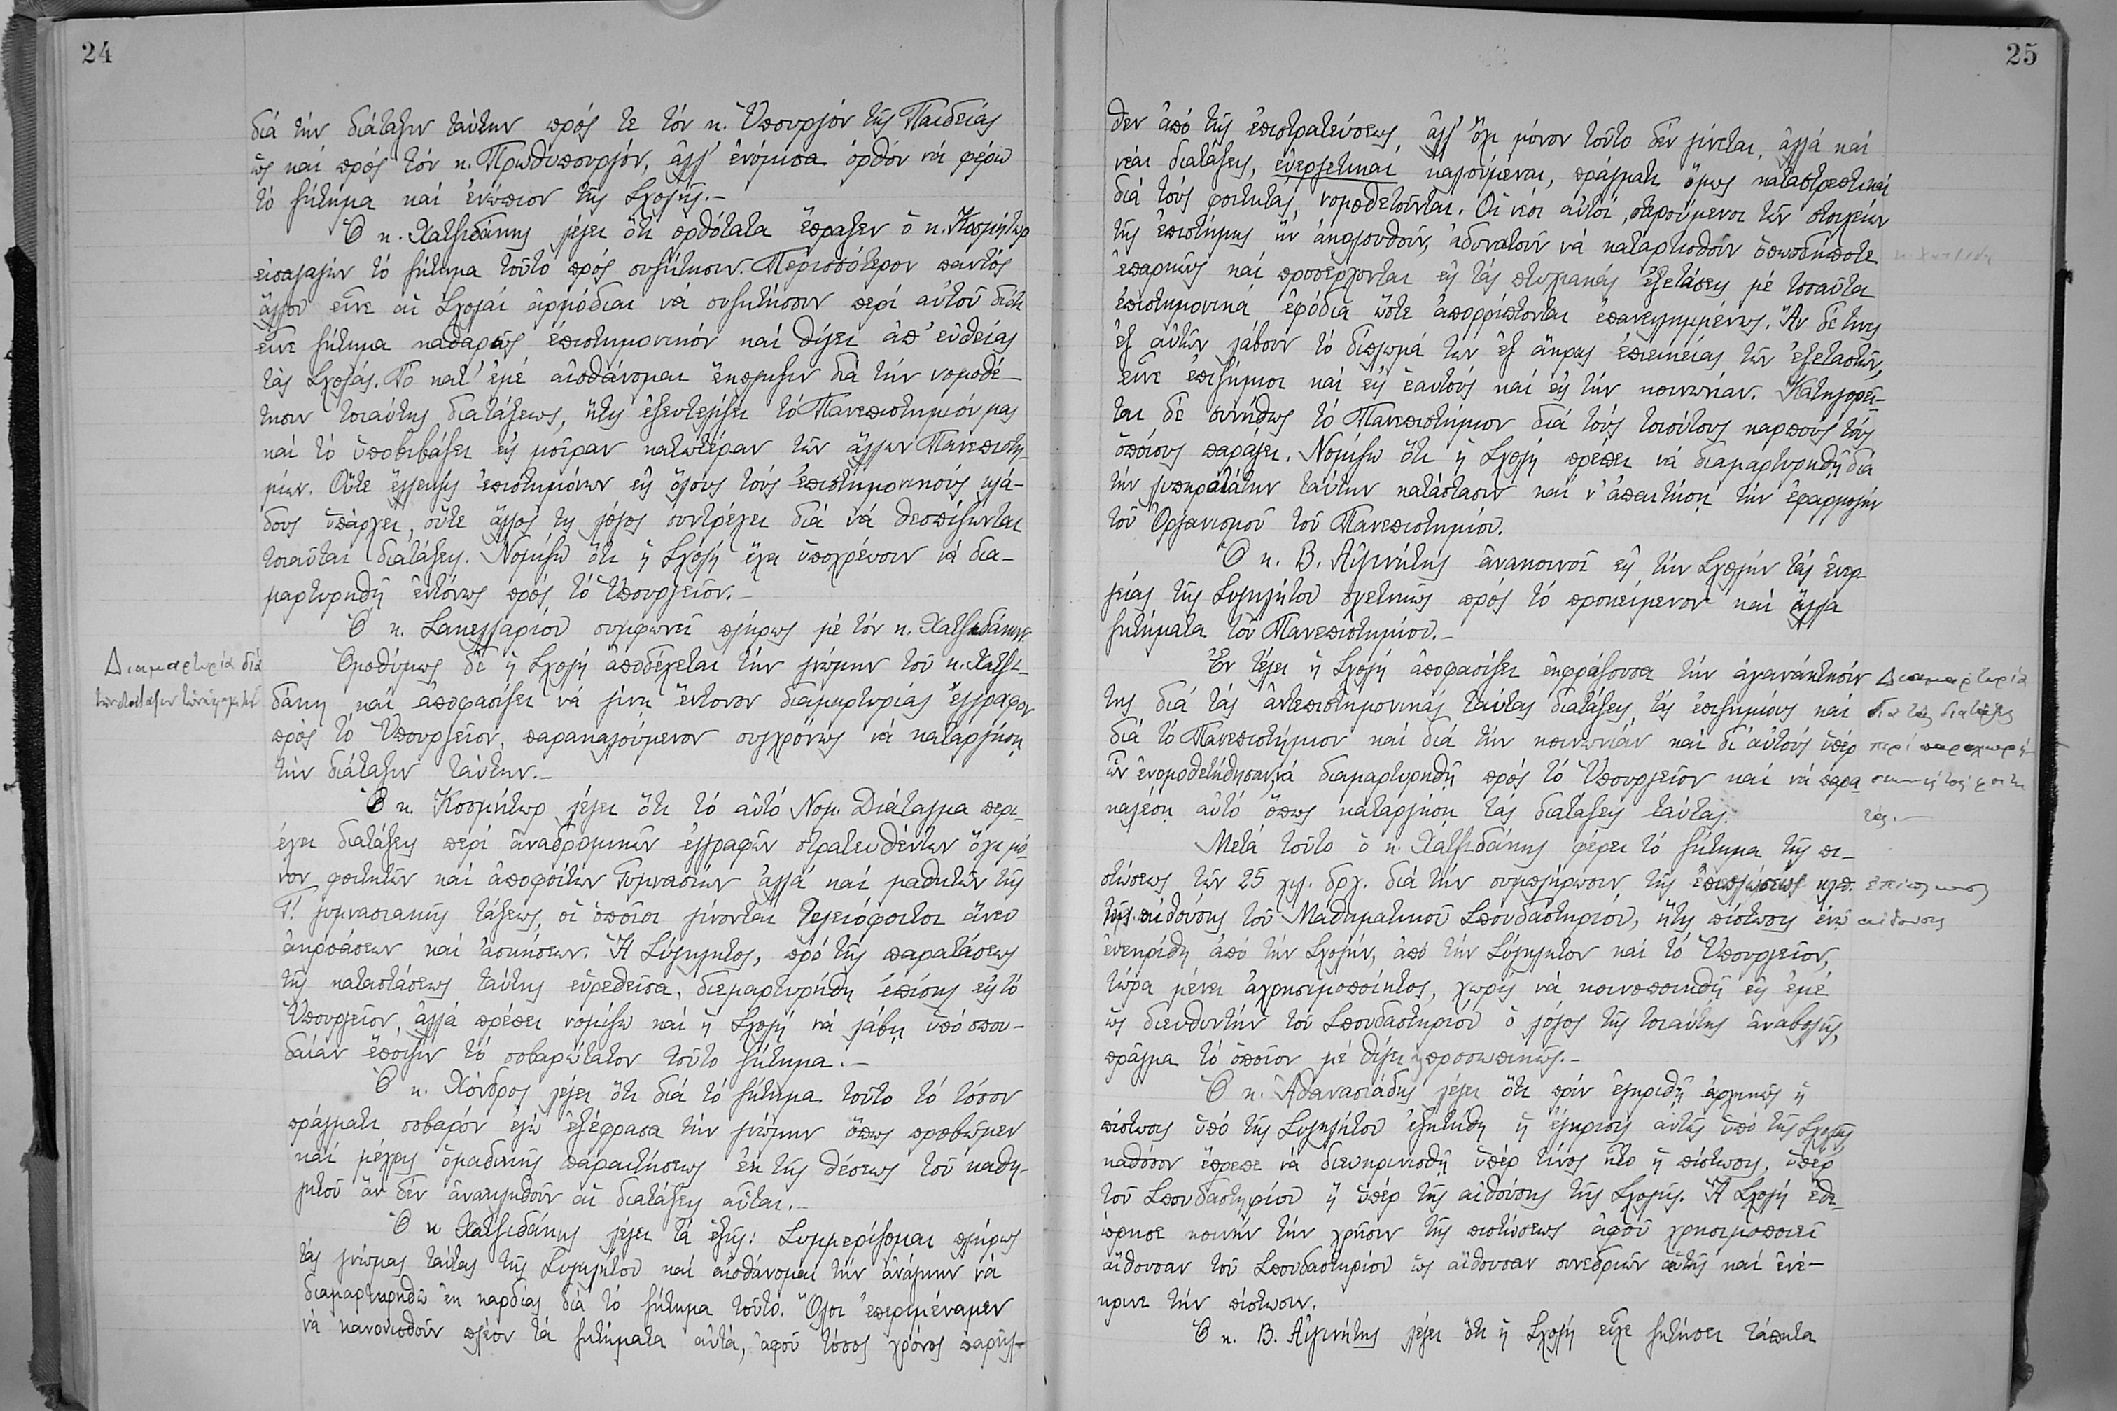 24
διά τήν διάταξιν ταύτην πρός τε τόν κ. Ὑπουργόν τῆς Παιδείας
ὡς καί πρός τόν κ. Πρωθυπουργόν, ἀλλ' ἐνόμισα ὀρθόν νά φέρω
τό ζήτημα καί ἐνώπιον τῆς Σχολῆς.-
Ὁ κ. Χατζιδάκης λέγει ὅτι ὀρθότατα ἔπραξεν ὁ κ. Κοσμήτωρ
εἰσαγαγών τό ζήτημα τοῦτο πρός συζήτησιν. Περισσότερον παντός
ἄλλου εἶνε αἱ Σχολαί ἁρμόδιαι νά συζητήσουν περί αὐτοῦ διότι
εἶνε ζήτημα καθαρῶς ἐπιστημονικόν καί θίγει ἀπ' εὐθείας
τάς Σχολάς. Τό κατ' ἐμέ αἰσθάνομαι ἔκπληξιν διά τήν νομοθέ-
τησιν τοιαύτης διατάξεως, ἥτις ἐξευτελίζει τό Πανεπιστήμιόν μας
καί τό ὑποβιβάζει εἰς μοῖραν κατωτέραν τῶν ἄλλων Πανεπιστη-
μίων. Οὔτε ἔλλειψις ἐπιστημόνων εἰς ὅλους τούς ἐπιστημονικούς κλά-
δους ὑπάρχει, οὔτε ἄλλος τις λόγος συντρέχει διά νά θεσπίζωνται
τοιαῦται διατάξεις. Νομίζω ὅτι ἡ Σχολή ἔχει ὑποχρέωσιν νά δια-
μαρτυρηθῇ ἐντόνως πρός τό Ὑπουργεῖον.-
Ὁ κ. Σακελλαρίου συμφωνεῖ πλήρως μέ τόν κ. Χατζιδάκην.
Διαμαρτυρία διά
Ὁμοθύμως δέ ἡ Σχολή ἀποδέχεται τήν γνώμην τοῦ κ. Χατζι-
δάκη καί ἀποφασίζει νά γίνῃ ἔντονον διαμαρτυρίας ἔγγραφον
πρός τό Ὑπουργεῖον, παρακαλούμενον συγχρόνως νά καταργήσῃ
τήν διάταξιν ταύτην.-
Ὁ κ. Κοσμήτωρ λέγει ὅτι τό αὐτό Νομ. Διάταγμα περι-
έχει διατάξεις περί ἀναδρομικῶν ἐγγραφῶν στρατευθέντων ὄχι μό-
νον φοιτητῶν καί ἀποφοίτων Γυμνασίων ἀλλά καί μαθητῶν τῆς
Γ΄ γυμνασιακῆς τάξεως οἱ ὁποῖοι γίνονται τελειόφοιτοι ἄνευ
ἀκροάσεων καί ἀσκήσεων. Ἡ Σύγκλητος, πρό τῆς παρατάσεως
τῆς καταστάσεως ταύτης εὑρεθεῖσα, διεμαρτυρήθη ἐπίσης εἰς τό
Ὑπουργεῖον, ἀλλά πρέπει νομίζω καί ἡ Σχολή νά λάβῃ ὑπό σπου-
δαίαν ἔποψιν τό σοβαρώτατον τοῦτο ζήτημα.-
Ὁ κ. Χόνδρος λέγει ὅτι διά τό ζήτημα τοῦτο τό τόσον
πράγματι σοβαρόν ἐγώ ἐξέφρασα τήν γνώμην ὅπως προβῶμεν
καί μέχρις ὁμαδικῆς παραιτήσεως ἐκ τῆς θέσεως τοῦ καθη-
γητοῦ ἄν δέν ἀνακληθοῦν αἱ διατάξεις αὗται.-
Ὁ κ Χατζιδάκης λέγει τά ἑξῆς: Συμμερίζομαι πλήρως
τάς γνώμας ταύτας τῆς Συγκλήτου καί αἰσθάνομαι τήν ἀνάγκην νά
διαμαρτυρηθῶ ἐκ καρδίας διά τό ζήτημα τοῦτο. Ὅλοι ἐπεριμέναμεν
νά κανονισθοῦν πλέον τά ζητήματα αὐτά, ἀφοῦ τόσος χρόνος παρῆλ-
25
θεν ἀπό τῆς ἐπιστρατεύσεως, ἀλλ' ὄχι μόνον τοῦτο δέν γίνεται, ἀλλά καί
νέαι διατάξεις, εὐεργετικαί καλούμεναι, πράγματι ὅμως καταστρεπτικαί
διά τούς φοιτητάς, νομοθετοῦνται. Οἱ νέοι αὐτοί, στερούμενοι τῶν στοιχείων
τῆς ἐπιστήμης ἥν ἀκολουθοῦν, ἀδυνατοῦν νά καταρτισθοῦν ὁπωσδήποτε
ἐπαρκῶς καί προσέρχονται εἰς τάς πτυχιακάς ἐξετάσεις μέ τοιαῦτα
ἐπιστημονικά ἐφόδια ὥστε ἀπορρίπτονται ἐπανειλημμένως. Ἄν δέ τινες
ἐξ αὐτῶν λάβουν τό δίπλωμά των ἐξ ἄκρας ἐπιεικείας τῶν ἐξεταστῶν,
εἶνε ἐπιζήμιοι καί εἰς ἑαυτούς καί εἰς τήν κοινωνίαν. Κατηγορεῖ-
ται δέ συνήθως τό Πανεπιστήμιον διά τούς τοιούτους καρπούς τούς
ὁποίους παράγει. Νομίζω ὅτι ἡ Σχολή πρέπει νά διαμαρτυρηθῇ διά
τήν λυπηροτάτην ταύτην κατάστασιν καί ν' ἀπαιτήσῃ τήν ἐφαρμογήν
τοῦ Ὀργανισμοῦ τοῦ Πανεπιστημίου.
Ὁ κ. Β. Αἰγινήτης ἀνακοινοῖ εἰς τήν Σχολήν τάς ἐνερ-
γείας τῆς Συγκλήτου σχετικῶς πρός τό προκείμενον καί ἄλλα
ζητήματα τοῦ Πανεπιστημίου.-
Ἐν τέλει ἡ Σχολή ἀποφασίζει ἐκφράζουσα τήν ἀγανάκτησίν
της διά τάς ἀντεπιστημονικάς ταύτας διατάξεις τάς ἐπιζημίους καί
διά τό Πανεπιστήμιον καί διά τήν κοινωνίαν καί δι' αὐτούς ὑπέρ
ὧν ἐνομοθετήθησαν, νά διαμαρτυρηθῇ πρός τό Ὑπουργεῖον καί νά παρα
καλέσῃ αὐτό ὅπως καταργήσῃ τάς διατάξεις ταύτας.
Διαμαρτυρία
διά τάς διατάξεις
περί παραχωρή
σεων εἰς τούς φοιτη
τάς.-
Μετά τοῦτο ὁ κ. Χατζιδάκης φέρει τό ζήτημα τῆς πι-
στώσεως τῶν 25 χιλ. δρχ. διά τήν συμπλήρωσιν τῆς ἐπιπλώσεως κλπ.
τῆς αἰθούσης τοῦ Μαθηματικοῦ Σπουδαστηρίου, ἥτις πίστωσις ἐνῷ
ἐνεκρίθη ἀπό τήν Σχολήν, ἀπό τήν Σύγκλητον καί τό Ὑπουργεῖον,
τώρα μένει ἀχρησιμοποίητος, χωρίς νά κοινοποιηθῇ εἰς ἐμέ
ὡς διευθυντήν τοῦ Σπουδαστηρίου ὁ λόγος τῆς τοιαύτης ἀναβολῆς,
πρᾶγμα τό ὁποῖον μέ θίγει προσωπικῶς.-
Ἐπίπλωσις
αἰθούσης
Ὁ κ. Ἀθανασιάδης λέγει ὅτι πρίν ἐγκριθῇ ἀρχικῶς ἡ
πίστωσις ὑπό τῆς Συγκλήτου ἐζητήθη ἡ ἔγκρισις αὐτῆς ὑπό τῆς Σχολῆς
καθόσον ἔπρεπε νά διευκρινισθῇ ὑπέρ τίνος ἦτο ἡ πίστωσις, ὑπέρ
τοῦ Σπουδαστηρίου ἤ ὑπέρ τῆς αἰθούσης τῆς Σχολῆς. Ἡ Σχολή ἐθε-
ώρησε κοινήν τήν χρῆσιν τῆς πιστώσεως ἀφοῦ χρησιμοποιεῖ
αἴθουσαν τοῦ Σπουδαστηρίου ὡς αἴθουσαν συνεδριῶν αὐτῆς καί ἐνέ-
κρινε τήν πίστωσιν.
Ὁ κ. Β. Αἰγινήτης λέγει ὅτι ἡ Σχολή εἶχε ζητήσει τάπητα